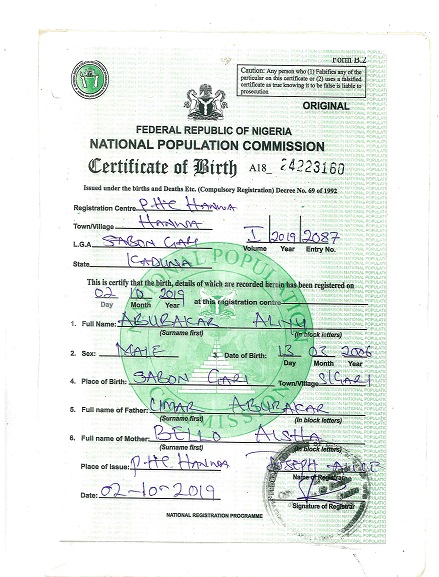 Form B.2
Caution: Any person who (1) Falsifies any of the
particular on this certificate or (2) uses a falsified
certificate as true knowing it to be false is liable to
prosecution
ORIGINAL
FEDERAL REPUBLIC OF NIGERIA
NATIONAL POPULATION COMMISSION
Certificate of Birth A18_ 24223160
Issued under the births and Deaths Etc. (Compulsory Registration) Decree No. 69 of 1992
Registration Centre P.H.C HANWA
Town/Village HANWA
L.G.A SABON GARI
I 2019 2087
Volume Year Entry No.
State KADUNA
This is certify that the birth, details of which are recorded herein has been registered on
02 10 2019 at this registration centre
Day Month Year
1. Full Name: ABUBAKAR ALIYU
(Surname first) (In block letters)
2. Sex: MALE 3. Date of Birth: 13 03 2006
Day Month Year
4. Place of Birth: SABON GARI Town/Village S/GARI
5. Full name of Father: UMAR ABUBAKAR
(Surname first) (In block letters)
6. Full name of Mother: BELLO AISHA
(Surname first) (In block letters)
Place of Issue: P.H.C HANWA JOSEPH
Name of Registrar
Date: 02-10-2019
Signature of Registrar
NATIONAL REGISTRATION PROGRAMME